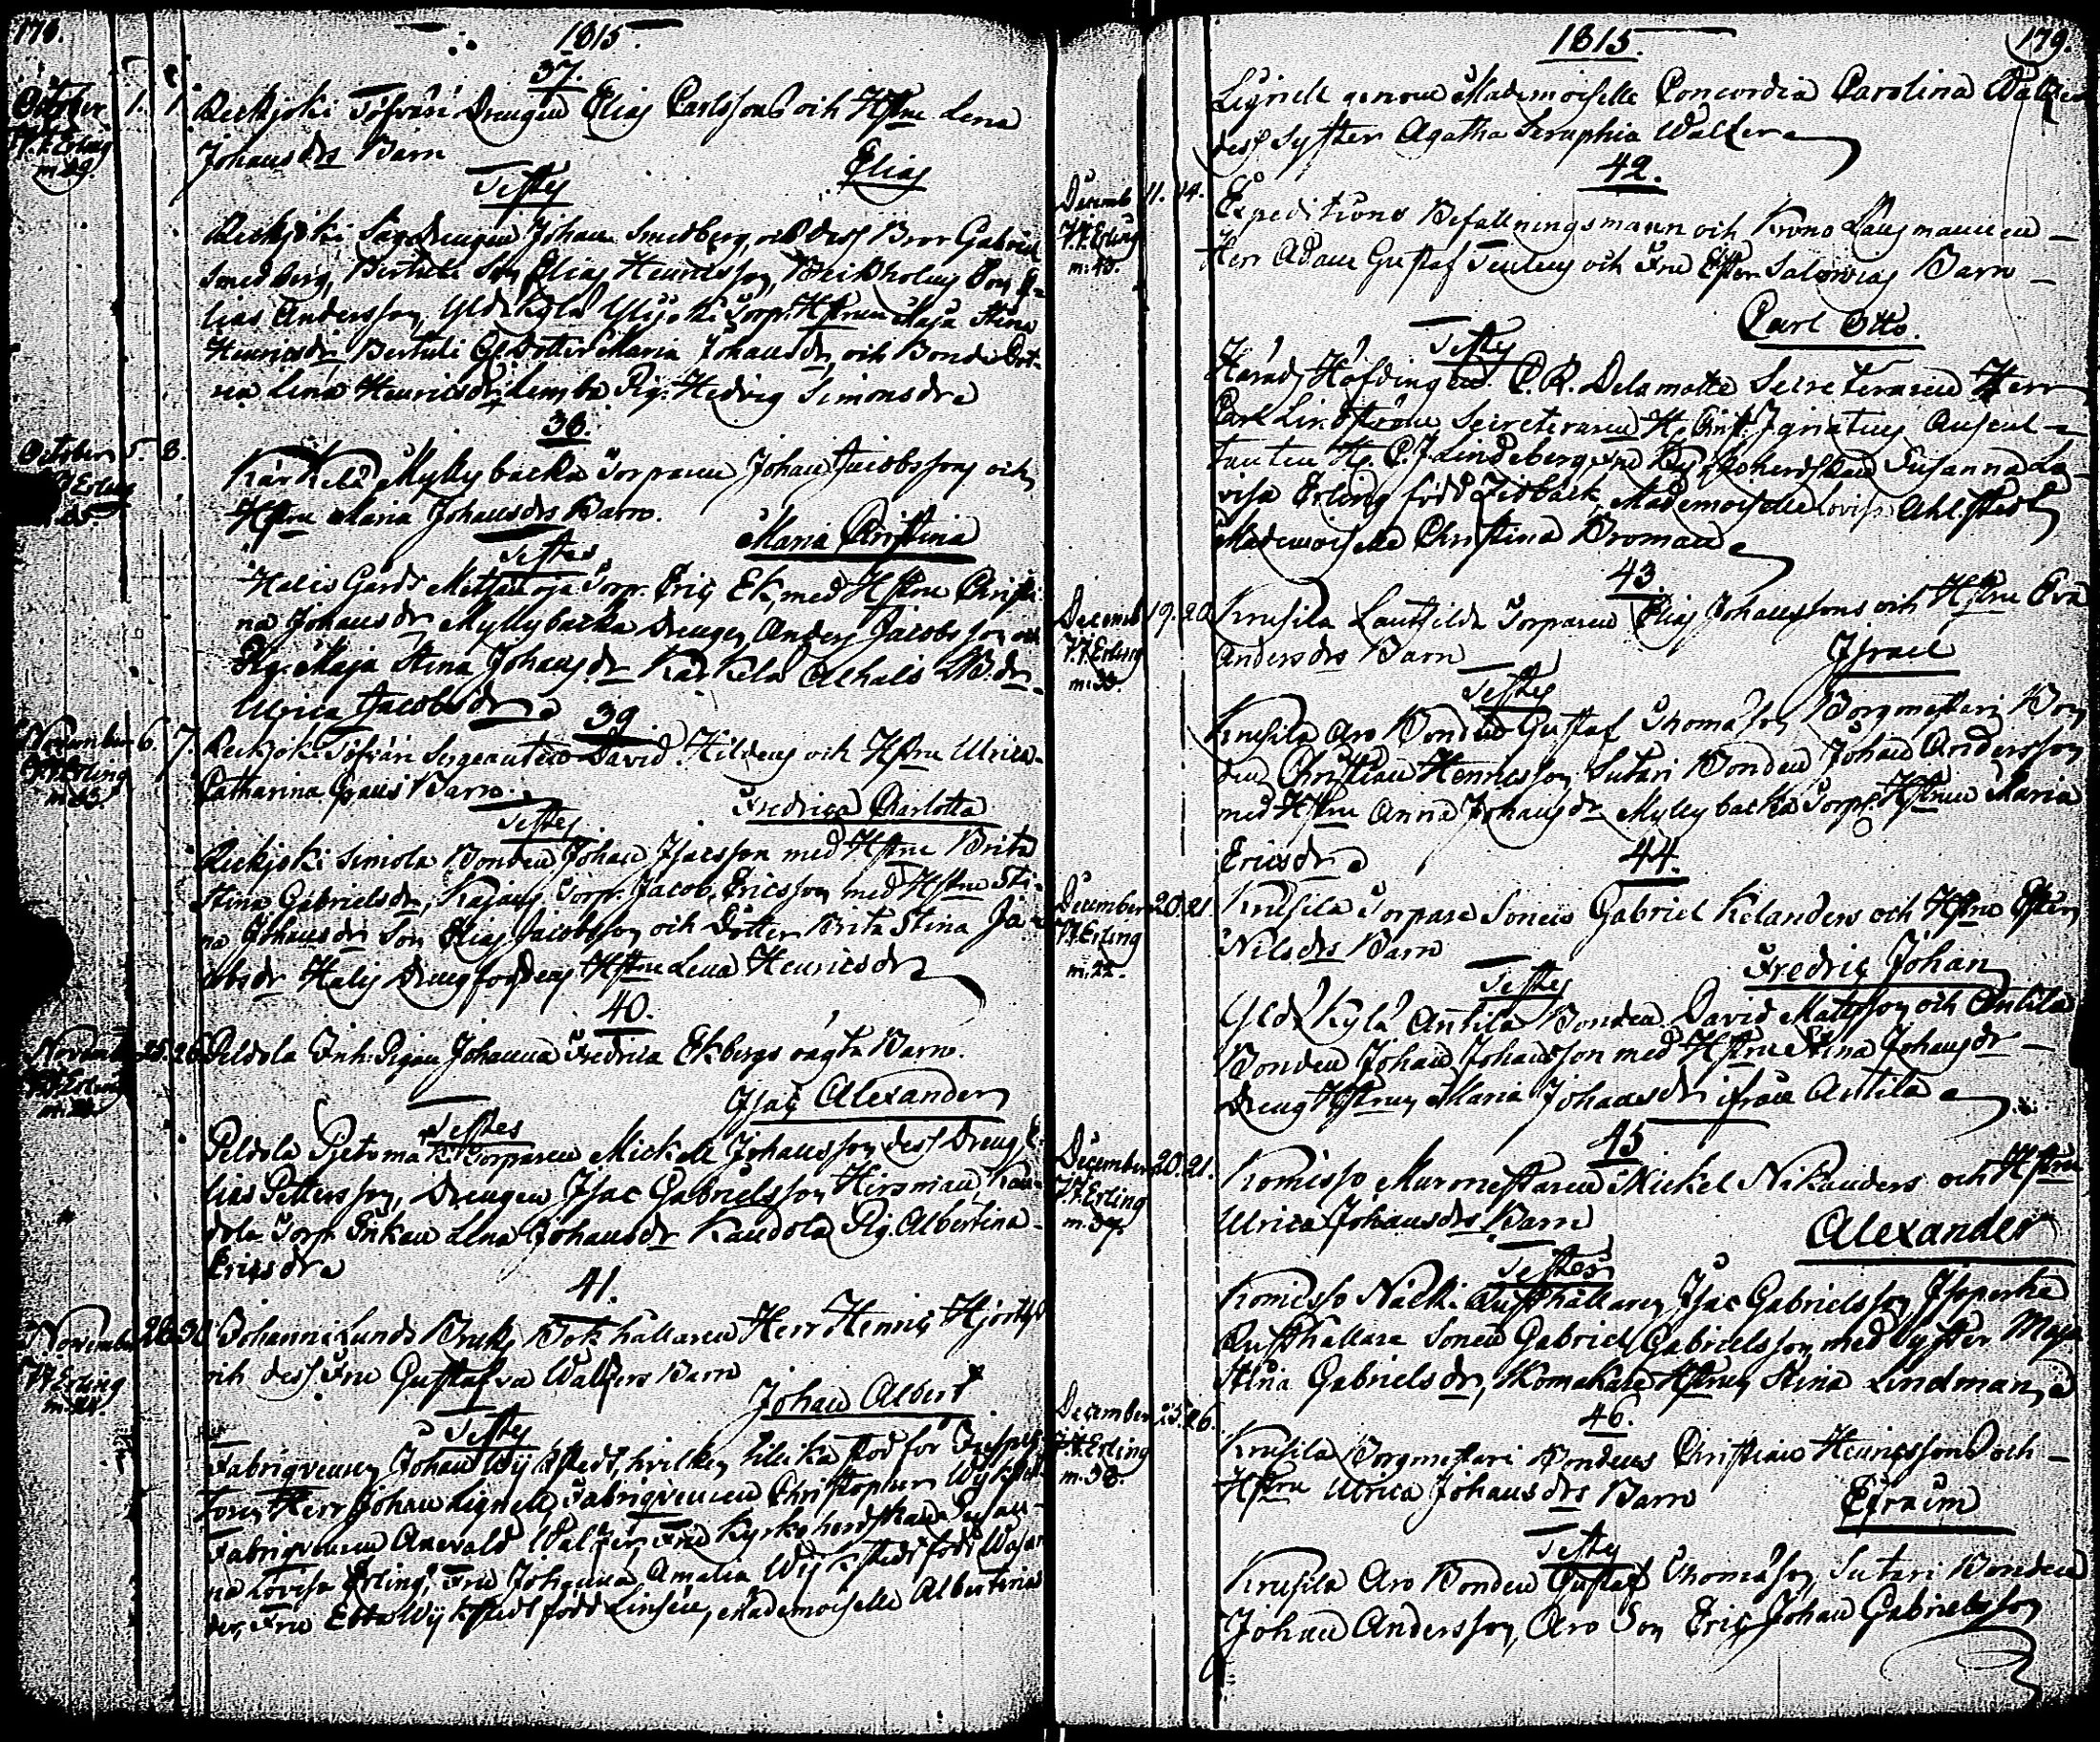 178.
1815.
37.
October 1. 1. Reckjoki Tofvari Drengen Elias Carlssons och Hstru Lena
F. F. Erling Johansdrs Barn
m. 29. Elias
Testes
Reckjoki Säg Drengen Johan Smedberg, och dess Bror Gabriel
Smedberg, Bertuli Son Elias Henricsson, Son E-
lias Andersson, Ylöskylä Ylijoki Torp. Hstrun Maja Stina
Henricsdr Bertuli Gl. Dotter Maria Johansdr, och Bonde Dot-
ren Lena Henricsdr Lemba Pig. Hedvig Simonsdr
38.
October 5. 8. Kärkelä Myllybacka Torparen Johan Jacobssons och
Erling Hstru Maria Johansdrs Barn.
Maria Christina
Testes
Halis Gårds Metsänoja Torp. Eric Ek, med Hstru Christi-
na Johansdr Myllybacka Drengen Anders Jacobsson och
Pig. Maja Stina Johansdr Kärkelä Alhais
Ulrica Jacobsdr
39.
November 6. 7. Reckjoki Tofvari Sergeanten David Hildens och Hstru Ulrica
F. F. Erling Catharina Barn.
m. 33. Fredrica Charlotta
Testes
Reckjoki Simola Bonden Johan Isacsson med Hstru Brita
Stina Gabrielsdr, Torp. Jacob Ericsson med Hstru Sti-
na Johansdr Son Elias Jacobsson och Dotter Brita Stina Ja-
cobsdr Halis Hstru Lena Henricsdr
40.
November 25. 26. Peldola Inh. Pigan Johanna Fredrica Ekbergs oägta Barn.
Isac Alexander
Testes
Peldola Torparen Mickell Johansson dess Dreng E-
lias Pettersson, Drengen Isac Gabrielsson Hirsman, Kan-
dola Torp. Enkan Lena Johansdr Kandola Pig. Albertina
Ericsdr
41.
November 28. 30. Johannislunds Bruks Bokhållaren Herr Henric Hjorth
F. F. Erling och dess Fru Gustafva Walzers Barn
Johan Albert
Testes
Fabriqveuren Johan Wijkstedt, hvilken tillika stod för Inspek-
toren Herr Johan Lignell, Fabriqveuren Christopher Wijkstedt
Fabriqveuren Anevald Walzer, Fru Kyrkoherdskan Susan-
na Lovisa Erling, Fru Johanna Amalia Wijkstedt född
Fru Ebba Wijkstedt född Linsén, Mademoiselle Albertina
1815.
179.
Lignell genom Mademoiselle Concordia Carolina Walzer
dess Syster Agatha Seraphia Walzer
42.
Decemb 11. 14. Expeditions Befallningsmann och Krono Länsmannen
F. F. Erling Herr Adam Gustaf och Fru Ester Barn
m. 43. Carl Otto.
Testes
Härads Höfdingen C. R. Delamotte Secreteraren Herr
Carl Lindström, Secreteraren Hr Christ. Ignatius Auscul-
tanten Hr. C. J. Lindeberg Fru Kyrkoherdskan Susanna Lo-
visa Erling född Zidbäck, Mademoiselle Lovisa Ahlstedt
Mademoiselle Christina Broman
43.
Decemb 19. 20. Krusila Torparen Elias Johanssons och Hstru Eva
F. F. Erling Andersdrs Barn
m. 33. Israel
Testes
Krusila Aro Bonden Gustaf Thomasson Borgmestari Bon-
den Christian Henricsson Sutari Bonden Johan Andersson
med Hstru Anna Johansdr Myllybacka Torp. Hstrun Maria
Ericsdr
44.
December 20. 21. Krusila Torpare Sonens Gabriel Kelanders och Hstru Ester
F. F. Erling Nilsdrs Barn
m. 22. Fredric Johan
Testes
Ylöskylä Antila Bonden David Mattsson och Antila
Bonden Johan Johansson med Hstru Stina Johansdr
Dreng Hstrun Maria Johansdr ifrån Antila
45
December 20. 21. Komisso Murmestaren Mickel Nikanders och Hstru
F. F. Erling Ulrica Johansdrs Barn
m. 37. Alexander
Testes
Komisso Näcki Rusthållaren Isac Gabrielsson Isoperhe
Rusthållare Sonen Gabriel Gabrielsson med Syster Maja
Stina Gabrielsdr, Hstrun Stina Lindman
46.
December 25. 26. Krusila Borgmestari Bondens Christian Henricssons och
F. F. Erling Hstru Ulrica Johansdrs Barn
m. 38. Efraim
Testes
Krusila Aro Bonden Gustaf Thomasson, Sutari Bonden
Johan Andersson, Aro Son Eric Johan Gabrielsson